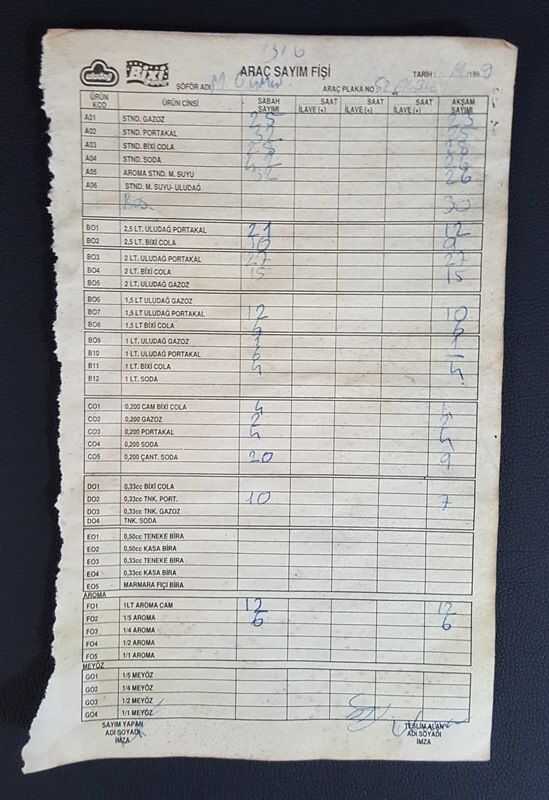 1316
uludağ BIXI ARAÇ SAYIM FİŞİ TARİH:
ŞÖFÖR ADI M ARAÇ PLAKA NO 52
ÜRÜN KOD ÜRÜN CİNSİ SABAH SAYIMI SAAT İLAVE (+) SAAT İLAVE (+) SAAT İLAVE (+) AKŞAM SAYIMI
A01 STND. GAZOZ 25
A02 STND. PORTAKAL 32
A03 STND. BİXİ COLA 28 28
A04 STND. SODA
A05 AROMA STND. M. SUYU 32 26
A06 STND. M. SUYU- ULUDAĞ
30
BO1 2,5 LT. ULUDAĞ PORTAKAL 21 12
BO2 2,5 LT. BİXİ COLA 10 9
BO3 2 LT. ULUDAĞ PORTAKAL 27 27
BO4 2 LT. BİXİ COLA 15 15
BO5 2 LT. ULUDAĞ GAZOZ
BO6 1,5 LT ULUDAĞ GAZOZ
BO7 1,5 LT ULUDAĞ PORTAKAL 12 10
BO8 1,5 LT BİXİ COLA
BO9 1 LT. ULUDAĞ GAZOZ
B10 1 LT. ULUDAĞ PORTAKAL 6 —
B11 1 LT. BİXİ COLA 4 4
B12 1 LT. SODA
CO1 0,200 CAM BİXİ COLA 4 4
CO2 0,200 GAZOZ 2
CO3 0,200 PORTAKAL 4 4
CO4 0,200 SODA
CO5 0,200 ÇANT. SODA 20 9
DO1 0,33cc BİXİ COLA
DO2 0,33cc TNK. PORT. 10 7
DO3 0,33cc TNK. GAZOZ
DO4 TNK. SODA
EO1 0,50cc TENEKE BİRA
EO2 0,50cc KASA BİRA
EO3 0,33cc TENEKE BİRA
EO4 0,33cc KASA BİRA
EO5 MARMARA FIÇI BİRA
AROMA
FO1 1LT AROMA CAM 12 12
FO2 1/5 AROMA 6 6
FO3 1/4 AROMA
FO4 1/2 AROMA
FO5 1/1 AROMA
MEYÖZ
GO1 1/5 MEYÖZ
GO2 1/4 MEYÖZ
GO3 1/2 MEYÖZ
GO4 1/1 MEYÖZ
SAYIM YAPAN TESLİM ALAN
ADI SOYADI ADI SOYADI
İMZA İMZA